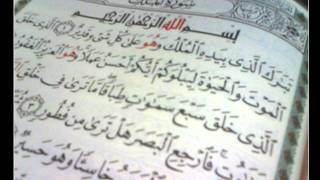 سُورَةُ الْمُلْكِ
بِسْمِ اللَّهِ الرَّحْمَٰنِ الرَّحِيمِ
تَبَٰرَكَ الَّذِي بِيَدِهِ الْمُلْكُ وَهُوَ عَلَىٰ كُلِّ شَيْءٍ قَدِيرٌ ۝ الَّذِي خَلَقَ
الْمَوْتَ وَالْحَيَوٰةَ لِيَبْلُوَكُمْ أَيُّكُمْ أَحْسَنُ عَمَلًا وَهُوَ الْعَزِيزُ الْغَفُورُ
الَّذِي خَلَقَ سَبْعَ سَمَٰوَٰتٍ طِبَاقًا مَا تَرَىٰ فِي خَلْقِ
فَارْجِعِ الْبَصَرَ هَلْ تَرَىٰ مِنْ فُطُورٍ ٣
خَاسِئًا وَهُوَ حَسِيرٌ